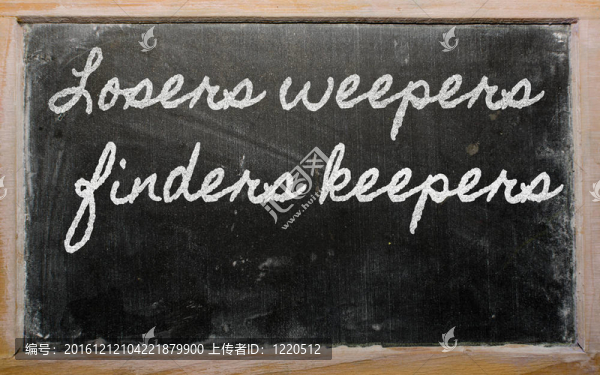 Losers weepers
finders keepers
汇图网
www.huitu.com
编号：20161212104221879900 上传者ID：1220512